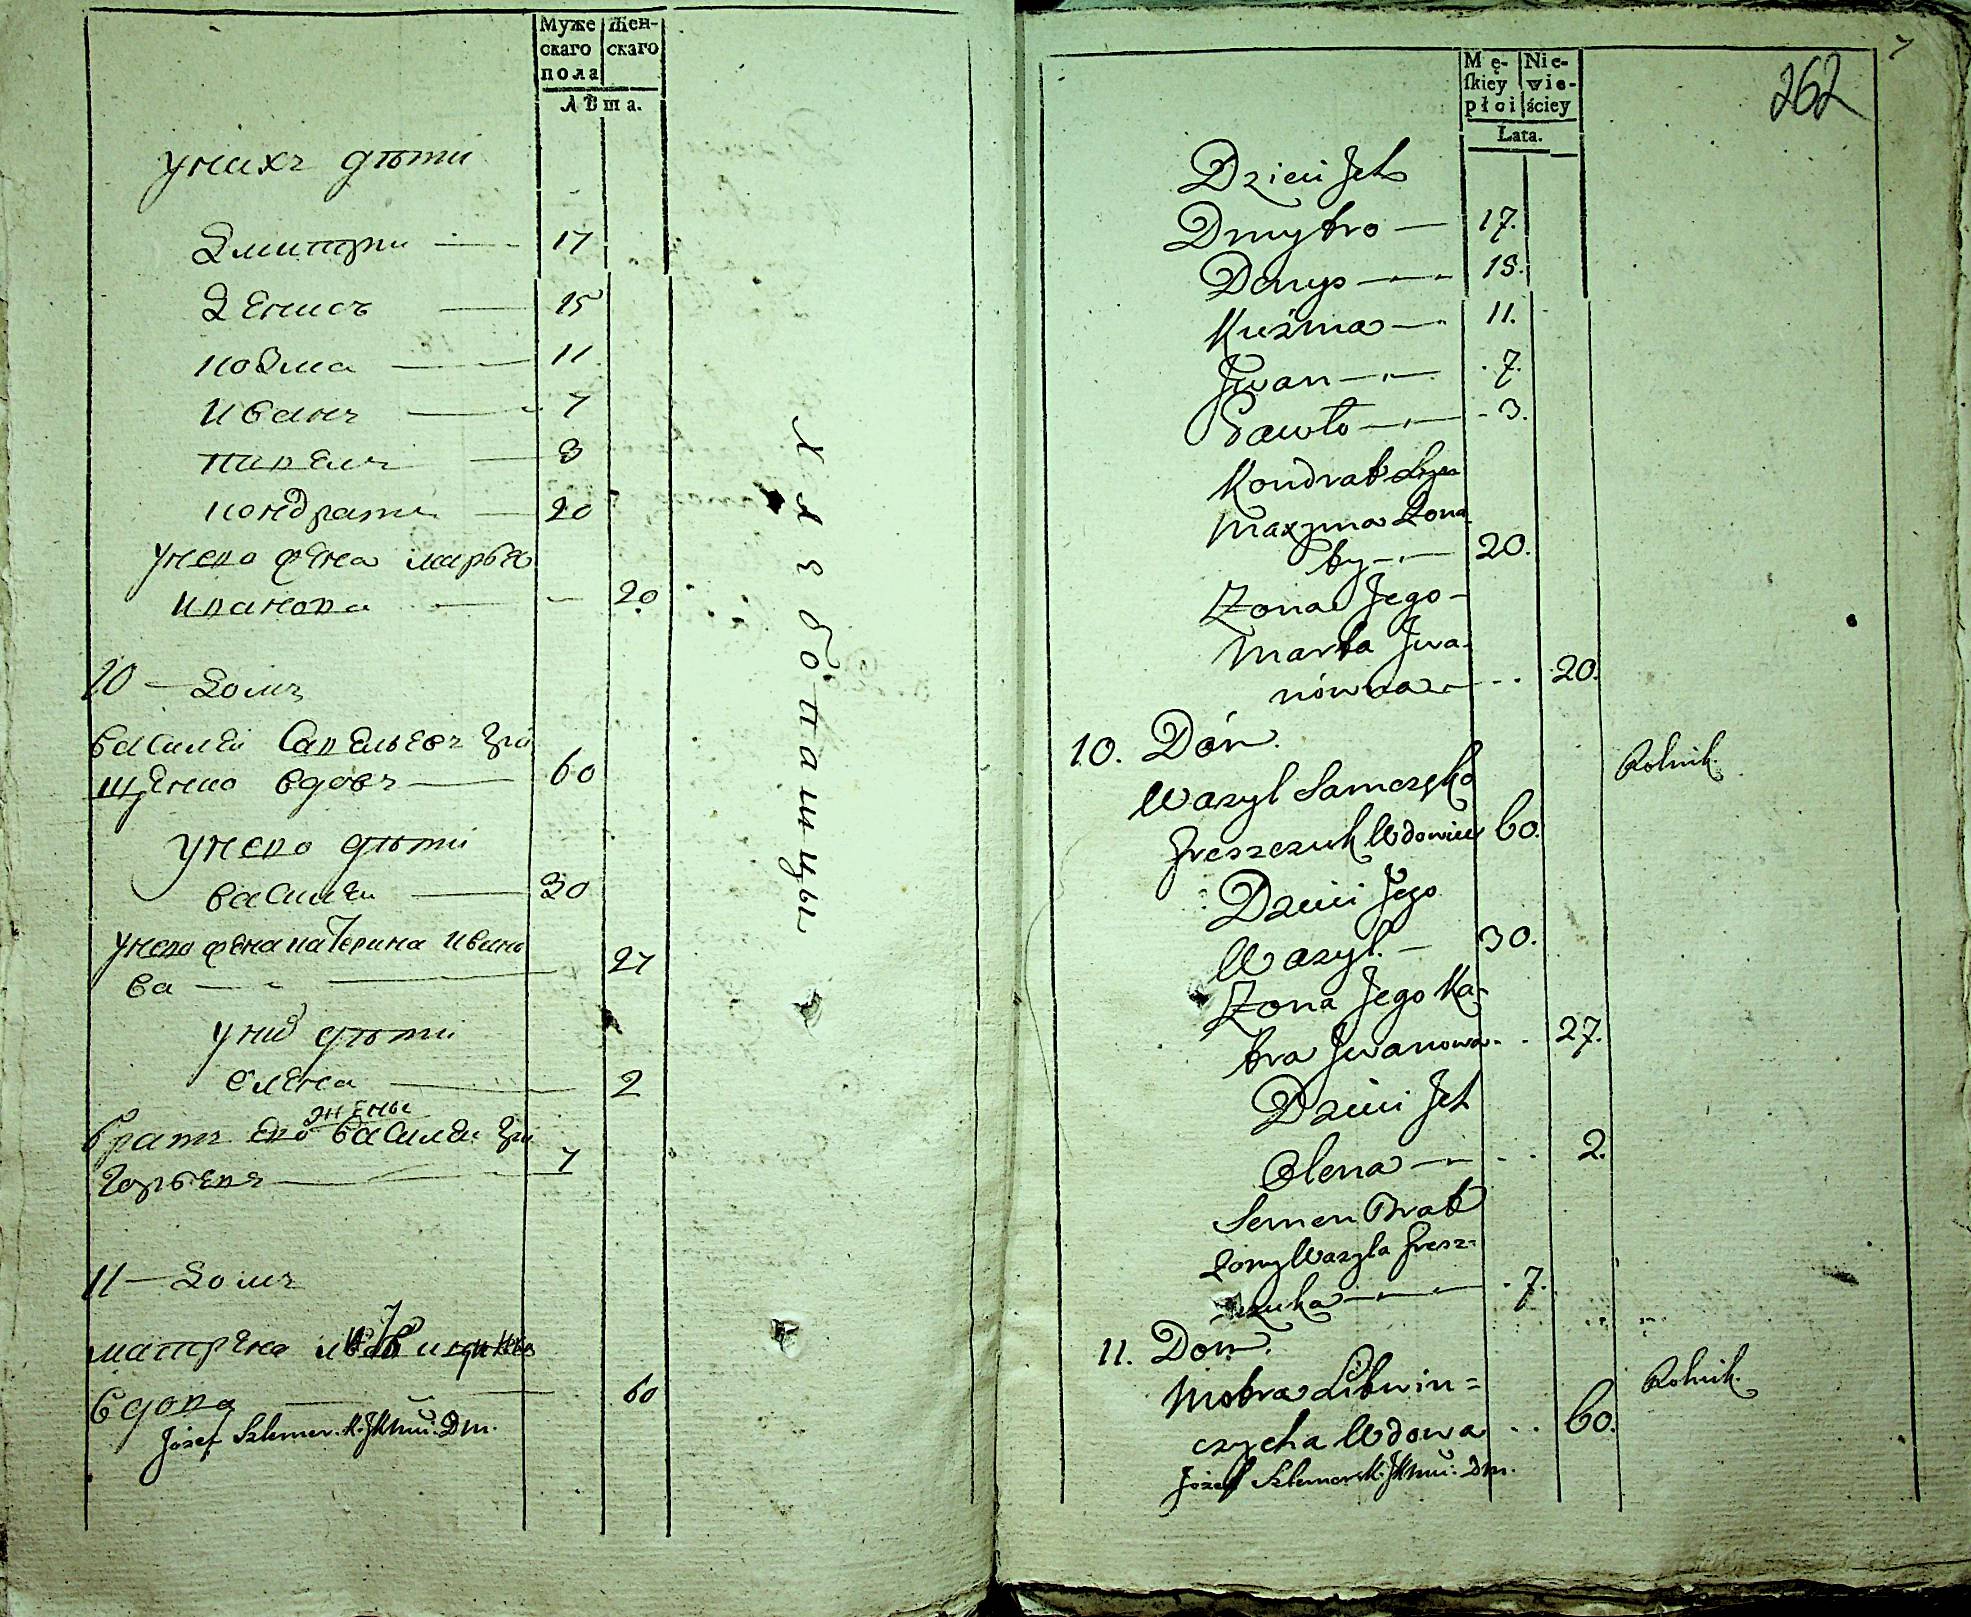 Муже
скаго
пола
Жен-
скаго
Лѣта.
унихъ дѣти
Дмитри 17
Денисъ 15
козма 11
иванъ 7
павелъ 3
кондрати 20
унево жена марья
иванова 20
10 Домъ
василей Савельевъ гри
щенко вдовъ 60
унево дѣти
василеи 30
унево жена катерина ивано
ва 27
уних дѣти
елена 2
жены
братъ ево василеи гри
горьевъ 7
11 Домъ
матрена
вдова 60
Józef
Хлѣбопашцы
262
Mę-
ſkiey
płci
Nie-
wie-
ściey
Lata.
Dzieci Jch
Dmytro 17.
Denys 15.
Kuźma 11.
Jwan 7.
Pawło 3.
Kondrat
Maxyma Żona
ty 20.
Żona Jego
Marta Jwa-
nówna 20.
10. Dom.
Wazyl Rolnik.
Greszczuk Wdowiec 60.
Dzieci Jego
Wazyl. 30.
Żona Jego Ka-
tra Jwanowa 27.
Dzieci Jch
Olena 2.
Semen Brat
Żony Wazyla Gresz=
czuka 7.
11. Dom.
Motra Litwin= Rolnik.
czycha Wdowa 60.
Józef